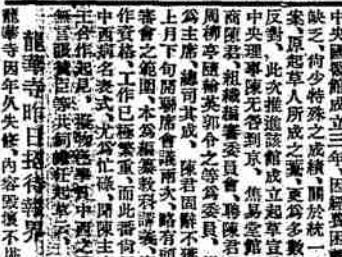 中央國醫館成立三年、因經費困難
缺乏、尚少特殊之成績、關於統一
案、原起草人所成之案、更爲多數
反對、此次推進該館成立起草宣
中央理事陳无咎到京、焦易堂館
商陳君、組織編審委員會、聘陳君
周柳亭隨翰英郭令之等爲委員、
爲主席、總司其成、陳君固辭不獲
上月下旬開聯席會議兩次、略有頭
審會之範圍、本爲編纂敎科講義、
作資格、工作已極繁重、而此番尚
中西病名表式、尤爲忙碌、聞陳主
工合作起見、擬物色學貫中西之
無言張贊臣等共同擔任起草云、
龍華寺昨日招待報界
龍華寺因年久失修、內容毀壞不堪